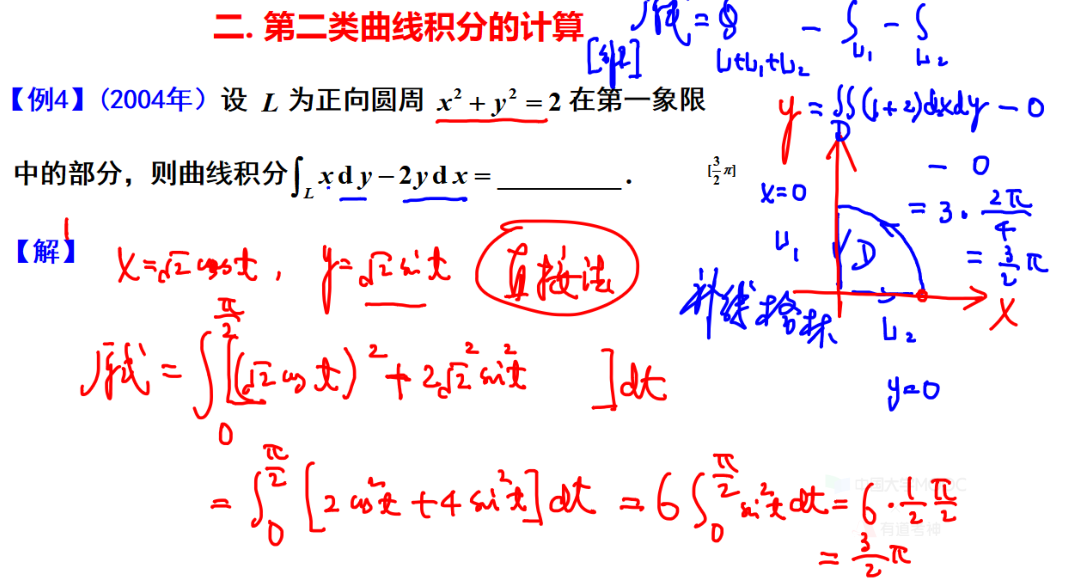 二. 第二类曲线积分的计算
【例4】(2004年）设 L 为正向圆周 x² + y² = 2 在第一象限
中的部分，则曲线积分∫_L x d y − 2 y d x = ________ .
[3/2 π]
【解】1
x=√2 cos t , y=√2 sin t 直接法
原式 = ∫_0^{π/2} [(√2 cos t)² + 2√2² sin² t ] dt
= ∫_0^{π/2} [2 cos² t + 4 sin² t] dt = 6 ∫_0^{π/2} sin² t dt = 6 · 1/2 π/2
= 3/2 π
原式 = ∮_{L+L₁+L₂} − ∫_{L₁} − ∫_{L₂}
= ∬_D (1+2)dxdy − 0
− 0
= 3 · 2π/4
= 3/2 π
y
x=0
L₁
D
补线格林
L₂
x
y=0
中国大学MOOC
有道考神